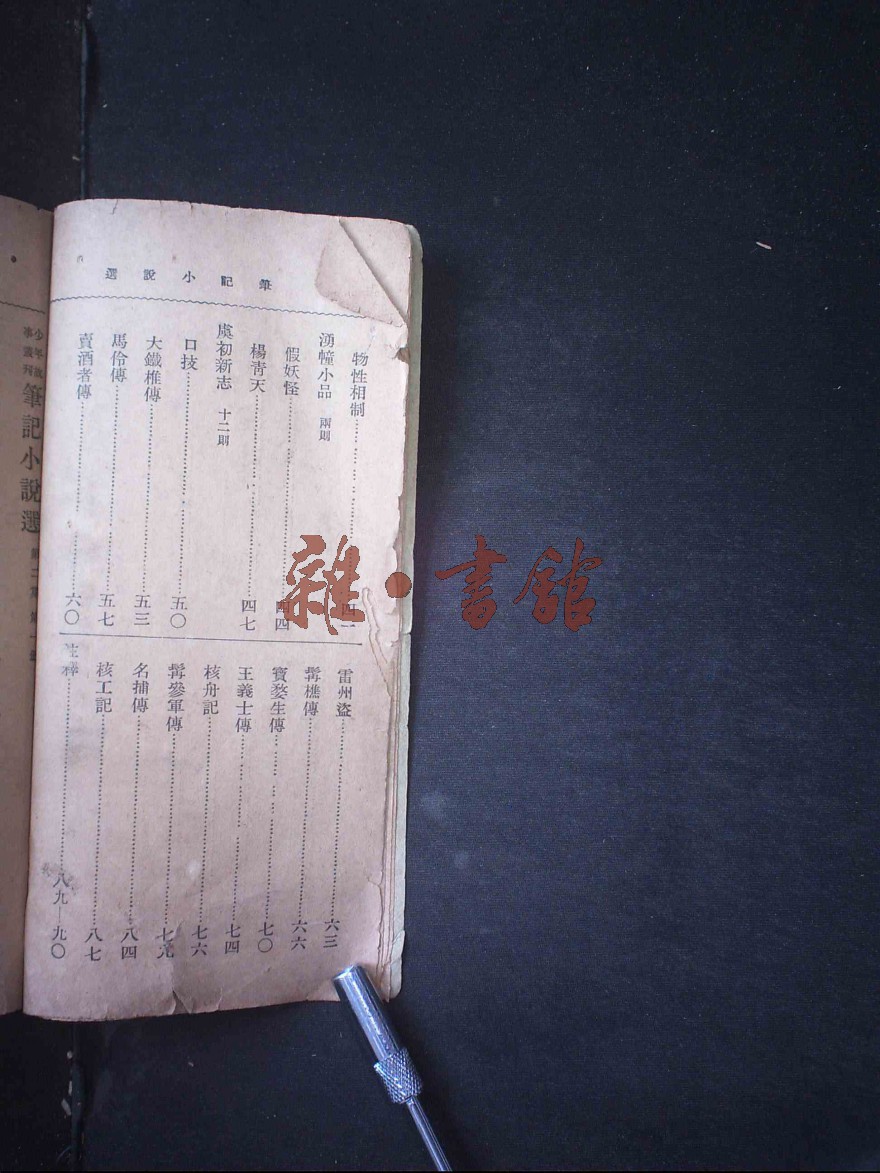 筆記小說選
物性相制……四一
湧幢小品 兩則
假妖怪……四四
楊青天……四七
虞初新志 十二則
口技……五〇
大鐵椎傳……五三
馬伶傳……五七
賣酒者傳……六〇
雷州盜……六三
髯樵傳……六六
寶婺生傳……七〇
王義士傳……七四
核舟記……七六
髯參軍傳……七九
名捕傳……八四
核工記……八七
注釋……八九—九〇
筆記小說選
雜·書館